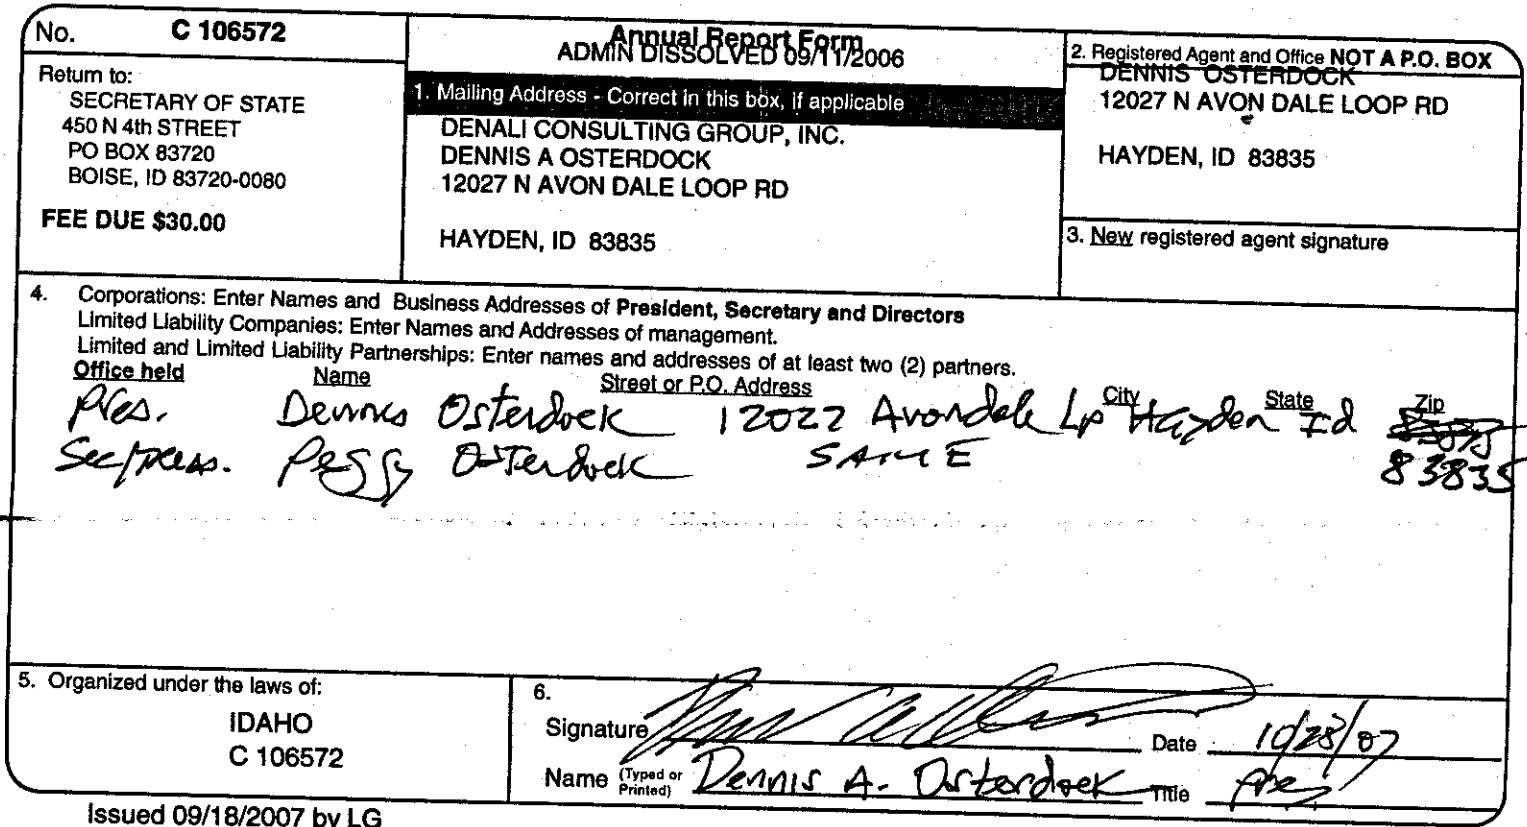 No. C 106572
Return to:
SECRETARY OF STATE
450 N 4th STREET
PO BOX 83720
BOISE, ID 83720-0080
FEE DUE $30.00
Annual Report Form
ADMIN DISSOLVED 09/11/2006
1. Mailing Address - Correct in this box, if applicable
DENALI CONSULTING GROUP, INC.
DENNIS A OSTERDOCK
12027 N AVON DALE LOOP RD
HAYDEN, ID 83835
2. Registered Agent and Office NOT A P.O. BOX
DENNIS OSTERDOCK
12027 N AVON DALE LOOP RD
HAYDEN, ID 83835
3. New registered agent signature
4. Corporations: Enter Names and Business Addresses of President, Secretary and Directors
Limited Liability Companies: Enter Names and Addresses of management.
Limited and Limited Liability Partnerships: Enter names and addresses of at least two (2) partners.
Office held Name Street or P.O. Address City State Zip
Pres. Dennis Osterdock 12027 Avondale Lp Hayden Id
Sec/Treas. Peggy Osterdock SAME 83835
5. Organized under the laws of:
IDAHO
C 106572
6.
Signature Date 10/28/07
Name (Typed or Printed) Dennis A. Osterdock Title Pres
Issued 09/18/2007 by LG